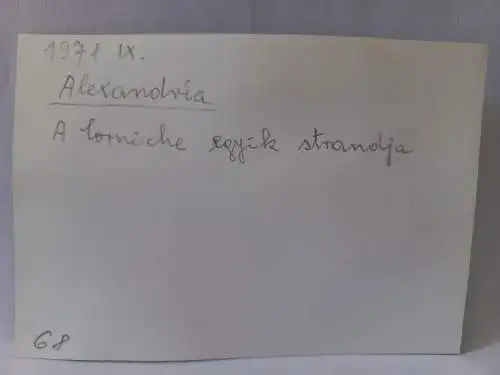 1971 IX.
Alexandria
A Corniche egyik strandja
68